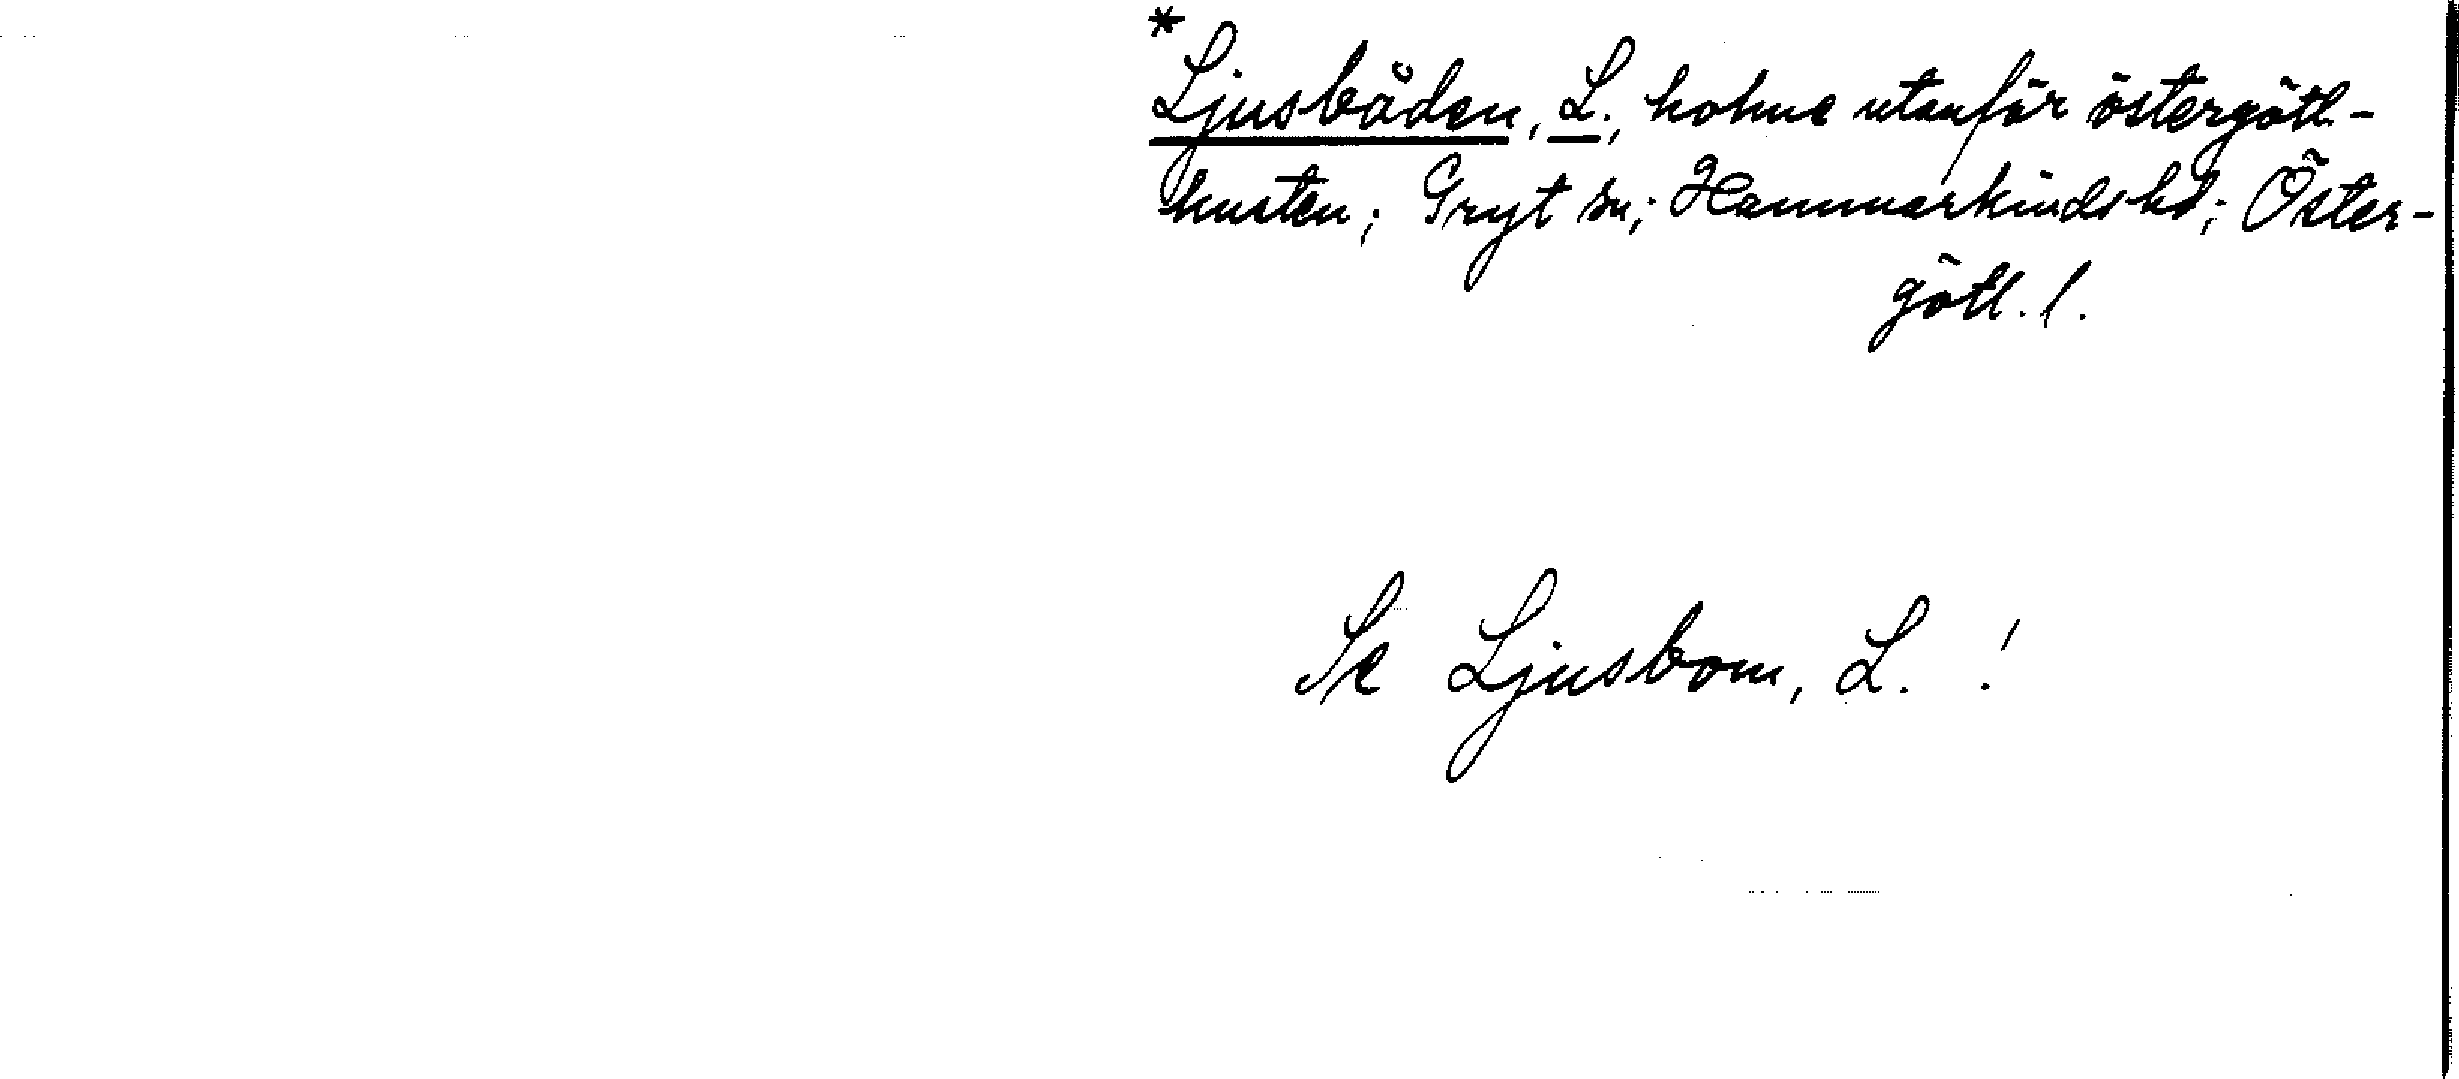 *
Ljusbåden, L., holme utanför östergötl-
kusten; Gryt sn; Hammarkinds hd; Öster-
götl. l.
Se Ljusbom, L. !